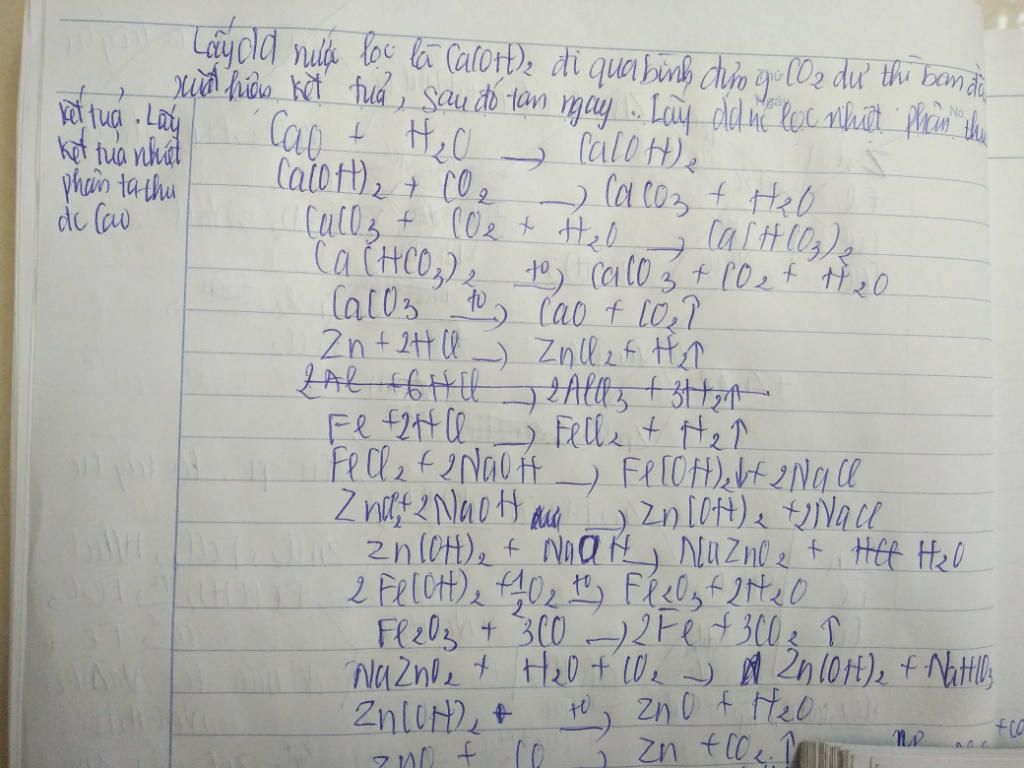 Lấy dd nước lọc là Ca(OH)₂ đi qua bình đựng CO₂ dư thì ban đầu
xuất hiện kết tủa, sau đó tan ngay. Lấy dd nc lọc nhiệt phân thu
kết tủa. Lấy
kết tủa nhiệt
phân ta thu
đc CaO
CaO + H₂O → Ca(OH)₂
Ca(OH)₂ + CO₂ → CaCO₃ + H₂O
CaCO₃ + CO₂ + H₂O → Ca(HCO₃)₂
Ca(HCO₃)₂ →t⁰ CaCO₃ + CO₂ + H₂O
CaCO₃ →t⁰ CaO + CO₂↑
Zn + 2HCl → ZnCl₂ + H₂↑
2Al + 6HCl → 2AlCl₃ + 3H₂↑
Fe + 2HCl → FeCl₂ + H₂↑
FeCl₂ + 2NaOH → Fe(OH)₂↓ + 2NaCl
ZnCl₂ + 2NaOH → Zn(OH)₂ + 2NaCl
Zn(OH)₂ + NaOH → NaZnO₂ + HCl H₂O
2Fe(OH)₂ + 1/2O₂ →t⁰ Fe₂O₃ + 2H₂O
Fe₂O₃ + 3CO → 2Fe + 3CO₂↑
NaZnO₂ + H₂O + CO₂ → Zn(OH)₂ + NaHCO₃
Zn(OH)₂ →t⁰ ZnO + H₂O
ZnO + CO → Zn + CO₂↑